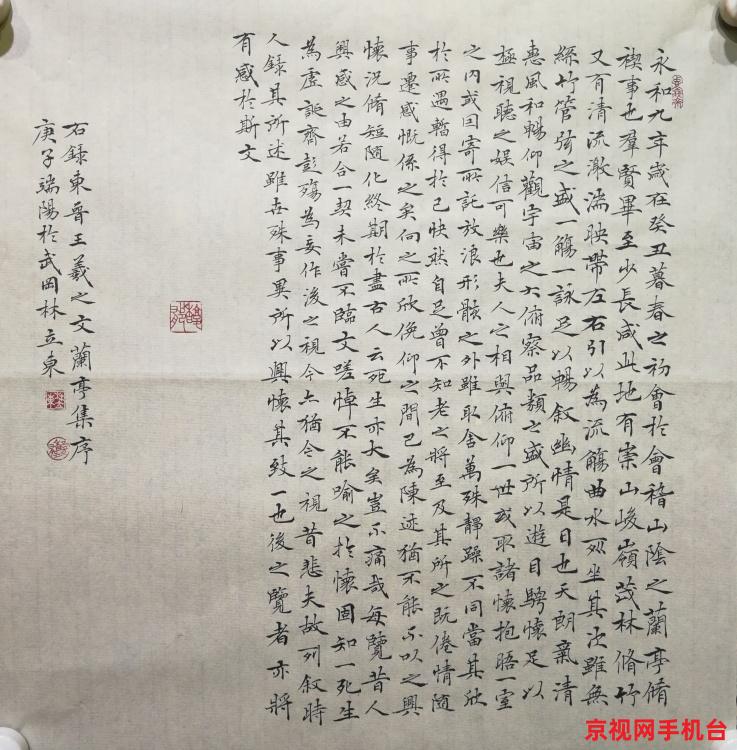 永和九年歲在癸丑暮春之初會於會稽山陰之蘭亭脩
禊事也羣賢畢至少長咸此地有崇山峻嶺茂林脩竹
又有清流激湍映帶左右引以為流觴曲水列坐其次雖無
絲竹管弦之盛一觴一詠足以暢敘幽情是日也天朗氣清
惠風和暢仰觀宇宙之大俯察品類之盛所以遊目騁懷足以
極視聽之娛信可樂也夫人之相與俯仰一世或取諸懷抱晤一室
之內或因寄所託放浪形骸之外雖取舍萬殊靜躁不同當其欣
於所遇暫得於己快然自足曾不知老之將至及其所之既倦情隨
事遷感慨係之矣向之所欣俛仰之間已為陳迹猶不能不以之興
懷況脩短隨化終期於盡古人云死生亦大矣豈不痛哉每覽昔人
興感之由若合一契未嘗不臨文嗟悼不能喻之於懷固知一死生
為虛誕齊彭殤為妄作後之視今亦猶今之視昔悲夫故列敘時
人錄其所述雖世殊事異所以興懷其致一也後之覽者亦將
有感於斯文
右錄東晉王羲之文蘭亭集序
庚子端陽於武岡林立東
京视网手机台